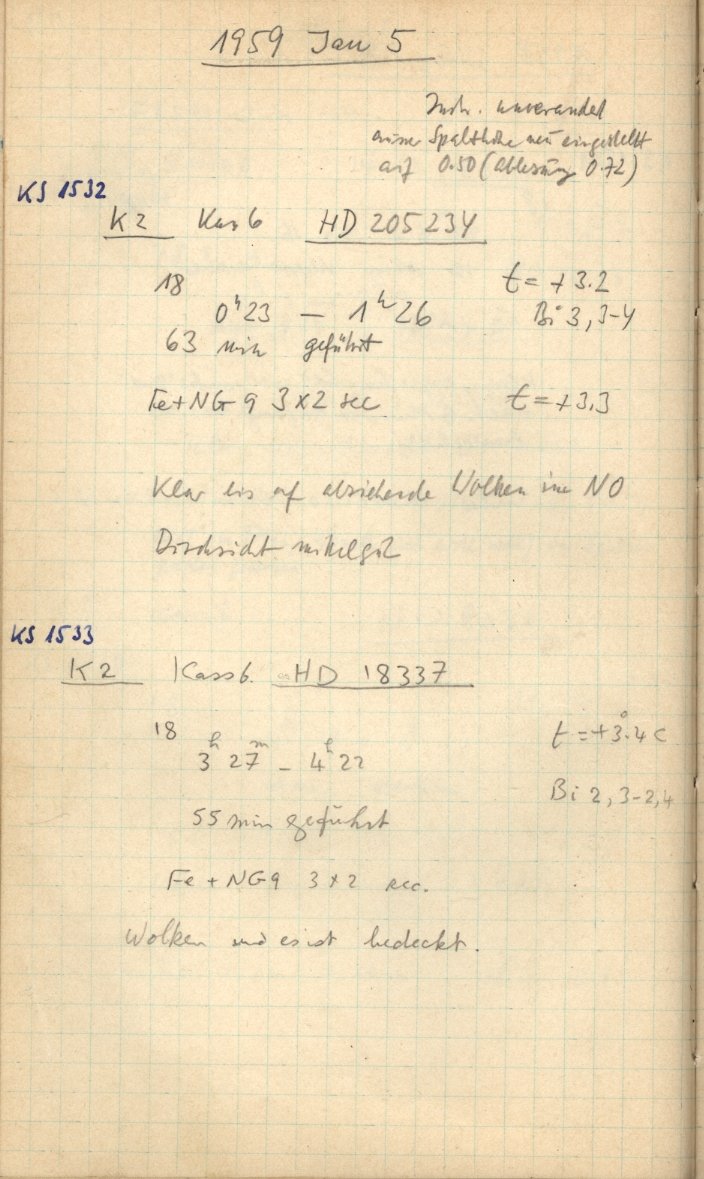 1959 Jan 5
Instr. unverändert
ausser Spalthöhe neu eingestellt
auf 0.50 (Ablesung 0.72)
KS 1532
K2 Kass 6 HD 205234
18
t = +3.2
0h 23 — 1h 26
Bi 3, 3-4
63 min geführt
Fe+NG 9 3×2 sec
t = +3,3
Klar bis auf abziehende Wolken im NO
Durchsicht mittelgut
KS 1533
K2 Kass 6. HD 18337
18
t = +3°.4 C
3h 27m - 4h 22
Bi 2, 3-2,4
55 min geführt
Fe + NG 9 3×2 sec.
Wolken und es ist bedeckt.